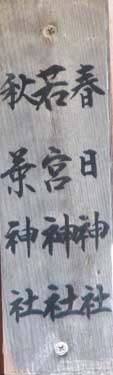 春日神社
若宮神社
秋葉神社